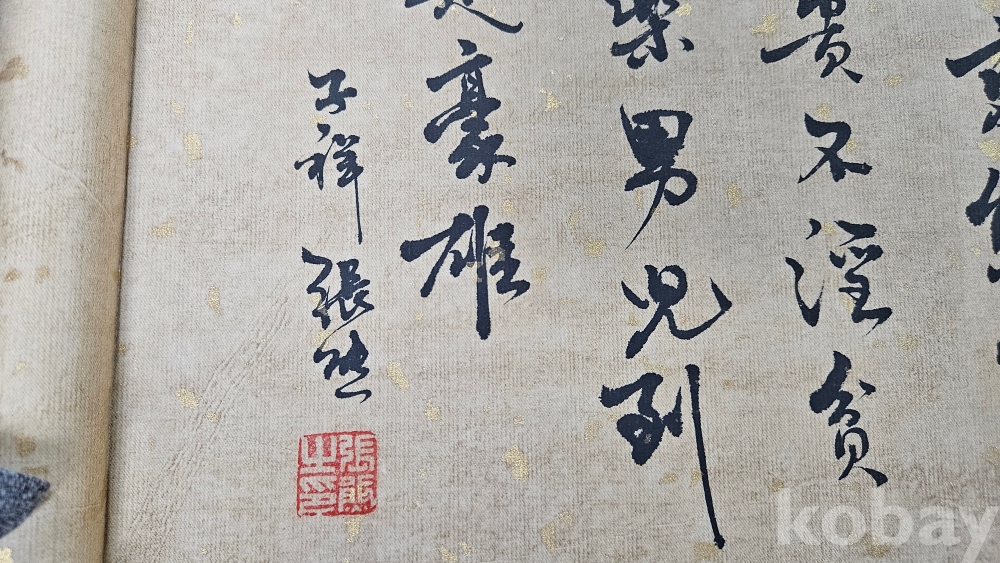 貴不淫貧
樂男兒到
豪雄
子祥張熊
張熊之印
kobay